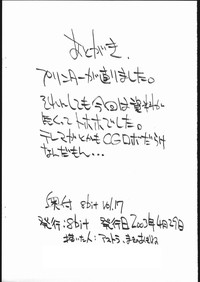 あとがき。
プリンターが直りました。
それにしても今回は資料が
無くてトホホでした。
テレマガとかもCGロボだらけ
なんだもん・・・
奥付 8bit vol.17
発行:8bit 発行日2003年4月29日
描いたん:アストラ、